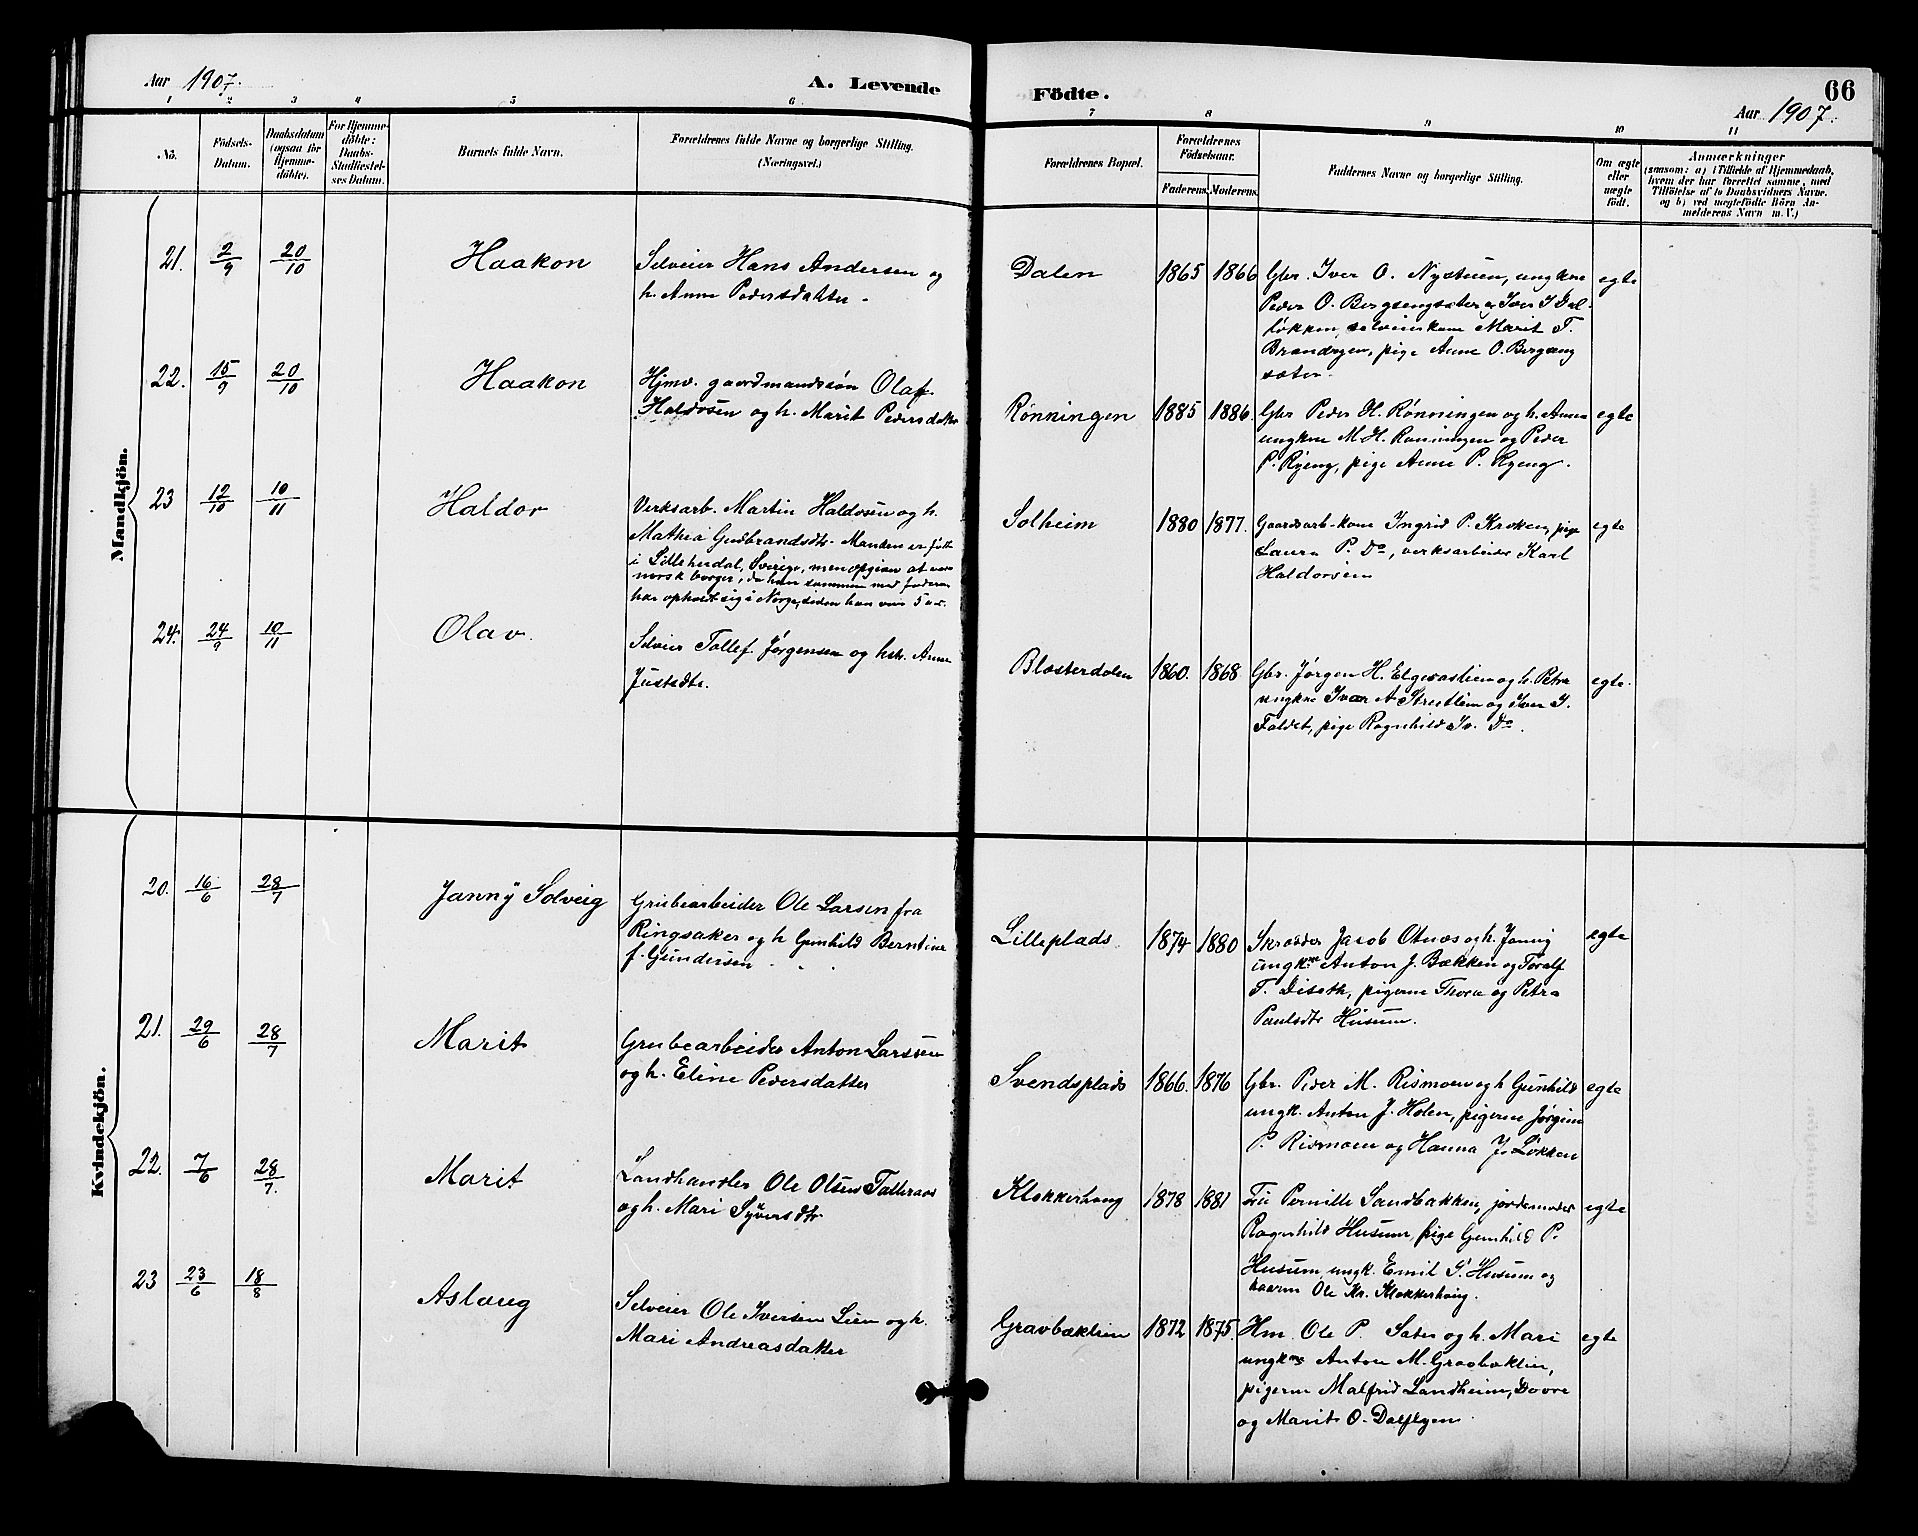 Aar 1907.
A. Levende
Födte.
66
Aar 1907.
1 2 3 4 5 6 7 8 9 10 11
No.
Födsels-Datum.
Daabsdatum (ogsaa for Hjemmedöbte).
For Hjemmedöbte: Daabs-Stadfæstelses Datum.
Barnets fulde Navn.
Forældrenes fulde Navne og borgerlige Stilling.
(Næringsvei.)
Forældrenes Bopæl.
Forældrenes Födselsaar.
Faderens. Moderens.
Faddernes Navne og borgerlige Stilling.
Om ægte eller uægte født.
Anmærkninger
(saasom: a) i Tilfælde af Hjemmedaab,
hvem der har forrettet samme, med
Tilföielse af to Daabsvidners Navne.
og b) ved uægtefödte Börn An-
melderens Navn m. V.)
Mandkjön.
21. 2/9 20/10 Haakon
Selveier Hans Andersen og
h. Anne Pedersdatter.
Dalen 1865 1866
Gbr. Iver O. Nystuen, ungkne
Peder O. Bergsengsæter og Iver I Dal-
løkken, selveierkone Marit T.
Brændryen, pige Anne O. Bergseng
sæter.
egte
22. 15/9 20/10 Haakon
Hjmv. gaardmandssøn Olaf
Haldosen og h. Marit Pedersdatter
Rønningen 1885 1886.
Gbr Peder H. Rønningen og h. Anne
ungkne M. H. Rønningen og Peder
P. Ryeng, pige Anne P. Ryeng.
egte
23 12/10 10/11 Haldor
Verksarb. Martin Haldosen og h.
Mathea Gudbrandsdtr. Manden er født
i Lilleherdal, Sverige, men opgives at være
norsk borger, da han sammen med faderen
har opholdt sig i Norge, siden han var 5 aar.
Solheim 1880 1877.
Gaardarb-kone Ingrid P. Kroken, pige
Laura P. Do, verksarbeider Karl
Haldorsen
egte
24. 24/9 10/11 Olav.
Selveier Tollef Jørgensen og hstr. Anne
Justsdtr.
Blæsterdalen 1860. 1868
Gbr. Jørgen H. Elgesætien og h. Petra
ungkne Ivar A Streitlien og Iver I.
Faldet, pige Ragnhild Iv. Do.
egte.
Kvindekjön.
20. 16/6 28/7 Janny Solveig
Grubearbeider Ole Larsen fra
Ringsaker og h Gunhild Berntine
f. Gundersen
Lilleplads 1874 1880
Skræder Jacob Otnes og h. Janny
ungkne Anton J. Bækken og Toralf
T. Diseth, pigerne Thora og Petra
Paulsdtr Husum.
egte
21. 29/6 28/7 Marit
Grubearbeider Anton Larssen
og h. Eline Pedersdatter
Svendsplads 1866. 1876
Gbr. Peder M. Rismoen og h Gunhild
ungk. Anton J. Holen, pigerne Jørgine
P. Rismoen og Hanna J. Løkken
egte
22. 7/6 28/7. Marit
Landhandler Ole Olsen Talleraas
og h. Mari Syversdtr
Klokkerhaug 1878 1881
Fru Pernille Sandbakken, jordemoder
Ragnhild Husum, pige Gunhild P.
Husum, ungk. Emil S. Husum og
Ole Kr. Klokkerhaug.
egte
23 23/6 18/8 Aslaug
Selveier Ole Iversen Lien og h.
Mari Andreasdatter
Gravbæklien 1872 1875.
Hm. Ole P. Sæter og h. Mari
ungkne Anton M. Gravbæklien,
pigerne Malfrid Landheim, Dovre
og Marit O. Dalflyen.
egte